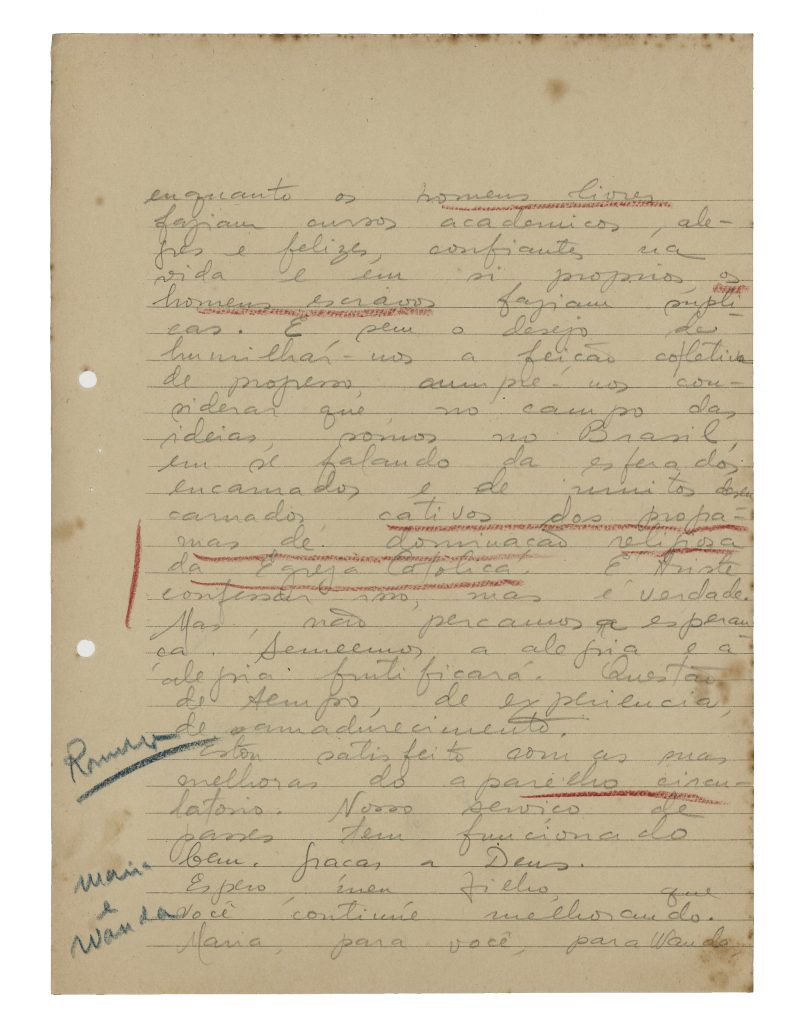 enquanto os homens livres
faziam cursos academicos, ale-
gres e felizes, confiantes na
vida e em si proprios, os
homens escravos faziam súpli-
cas. E sem o desejo de
humilhar-nos a feição coletiva
de progresso, cumpre-nos con-
siderar que no campo das
ideias, somos no Brasil,
em se falando da esfera dos
encarnados e de muitos desen
carnados, cativos dos progra-
mas de dominação religiosa
da Egreja Catolica. É triste
confessar isso, mas é verdade.
Mas, não percamos a esperan
ça. Semeemos a alegria e a
alegria frutificará. Questão
de tempo, de experiencia,
de amadurecimento.
Romeu
Estou satisfeito com as suas
melhoras do aparelho circu-
latorio. Nosso serviço de
passes tem funcionado
bem. Graças a Deus.
Maria
e
Wanda
Espero, meu filho, que
você continúe melhorando.
Maria, para você, para Wanda,